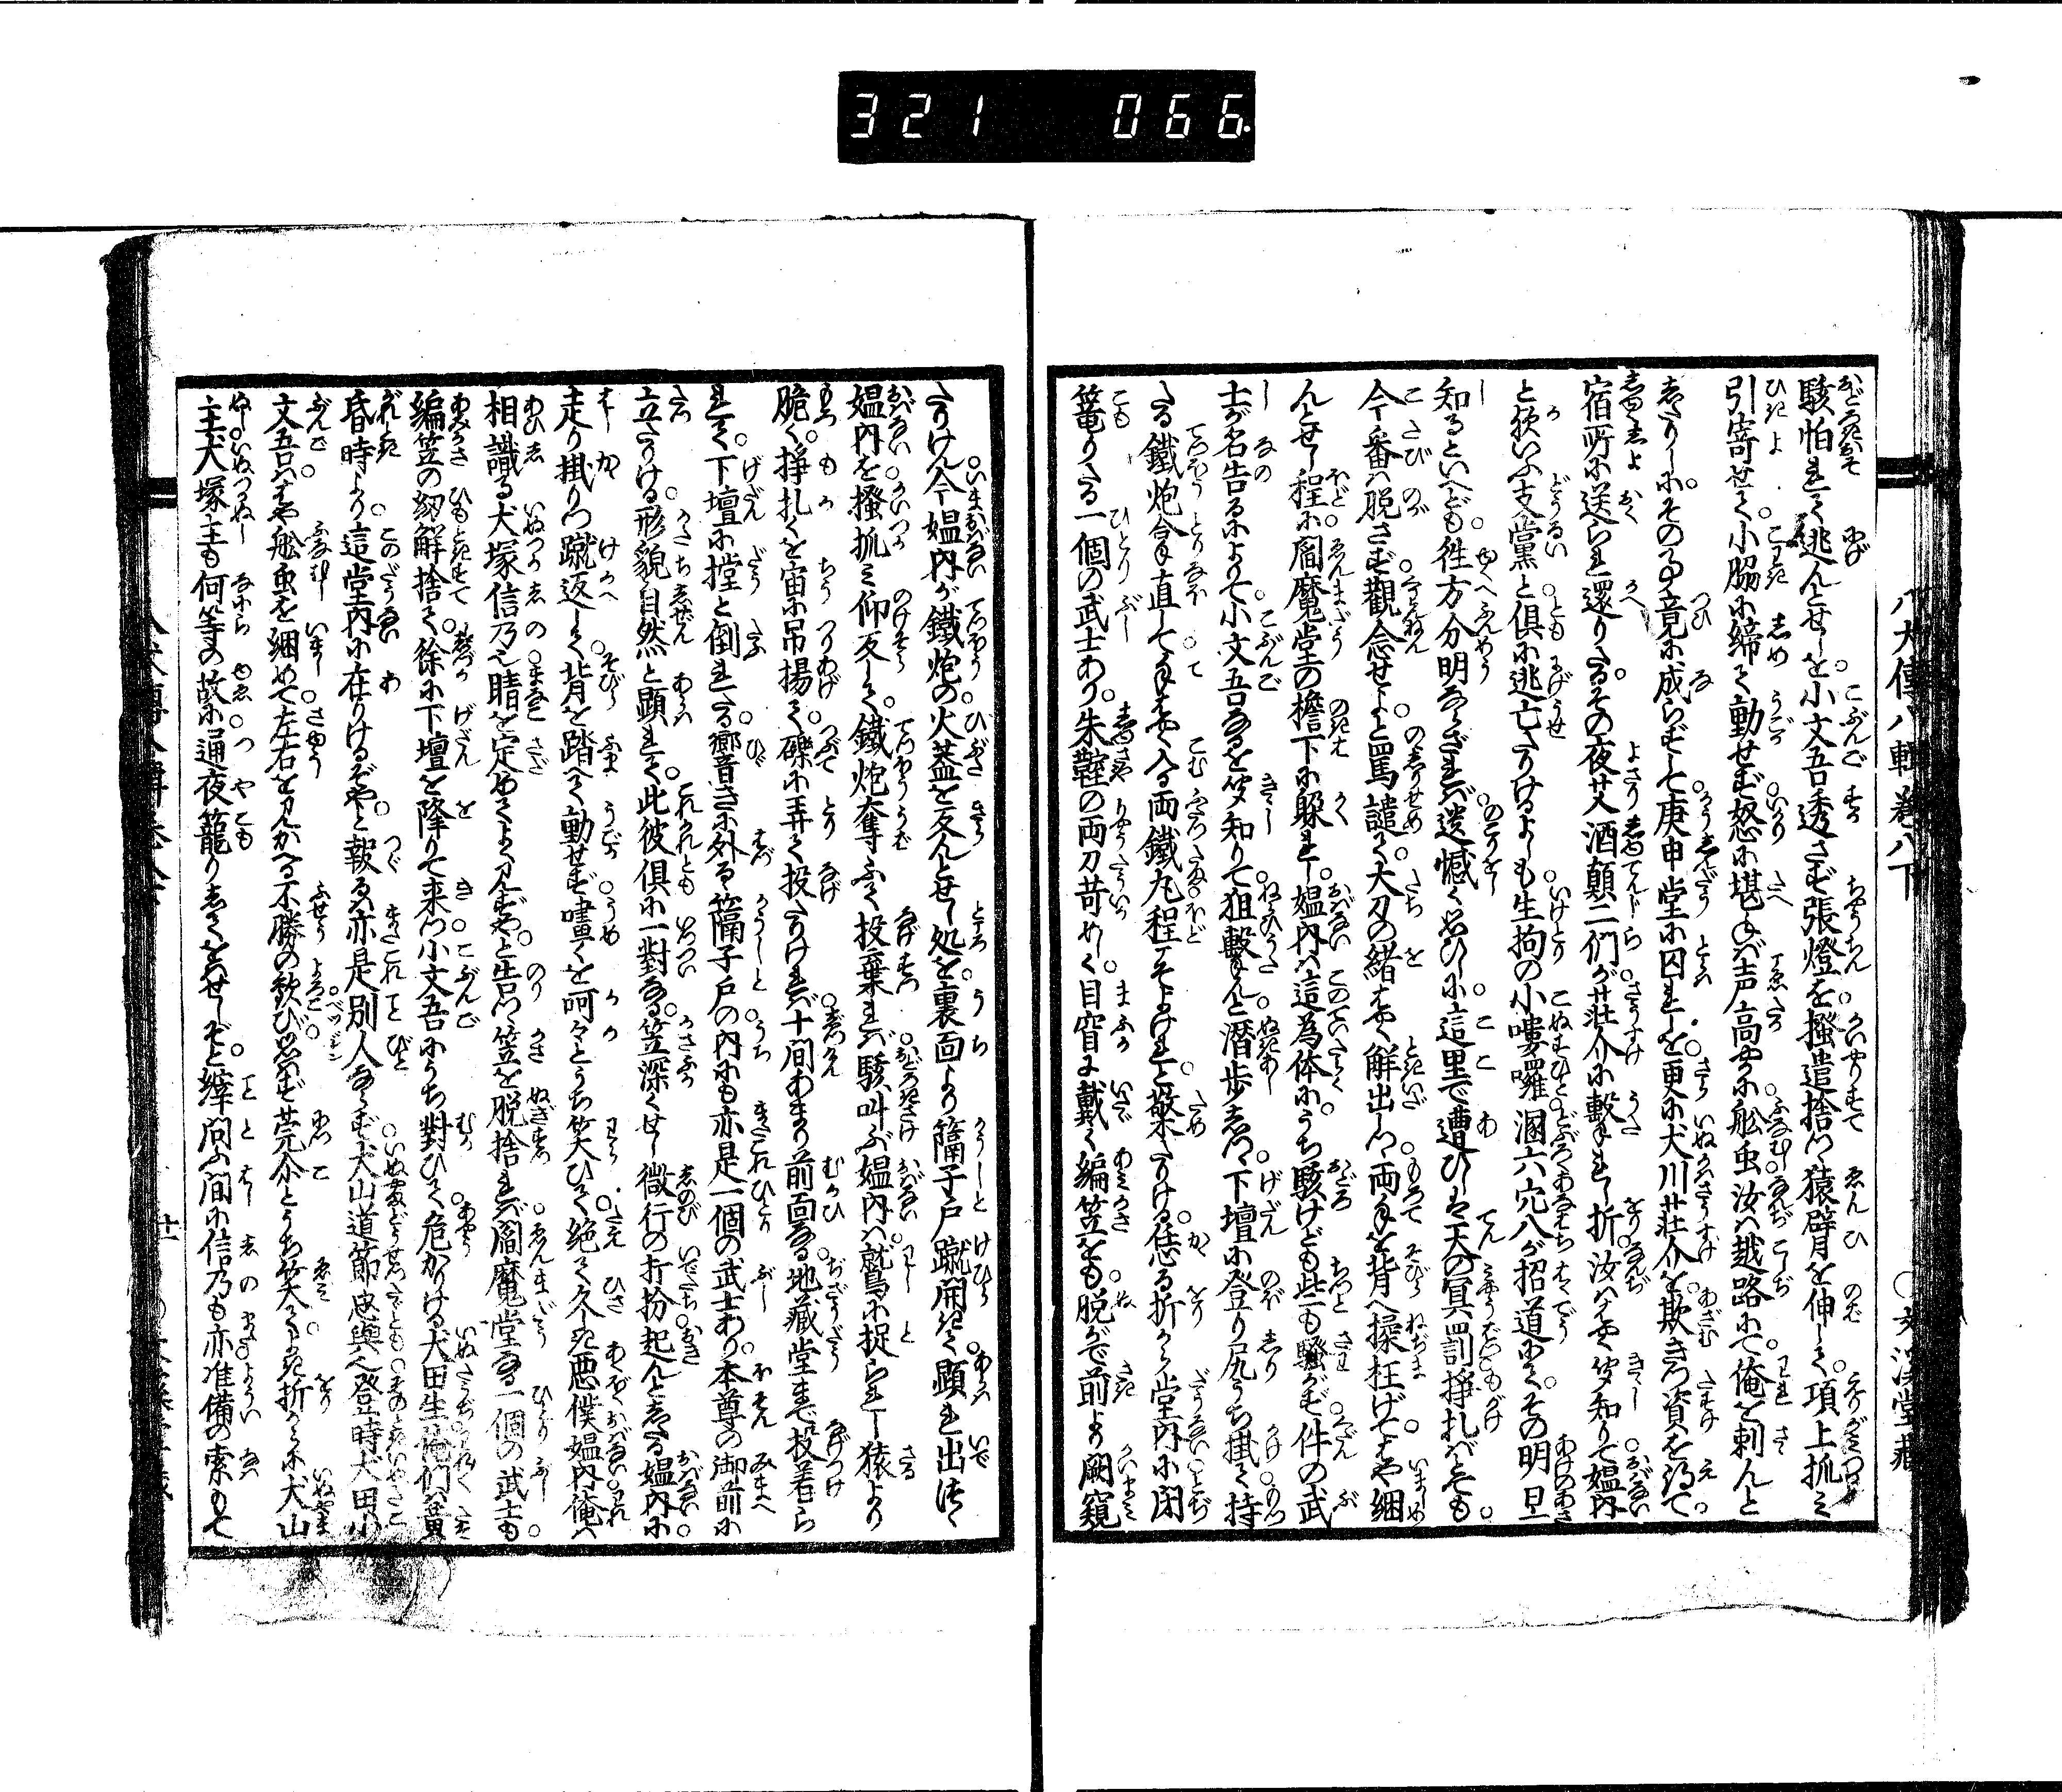 321 066.
八犬傳八輯卷八下
○文溪堂藏
駭怕れて逃んとせしを。小文吾透さず張燈を。掻遣捨つ。猿臂を伸して。項上抓み
引寄せて。小脇に締て動せず。怒に堪ねば声高やかに。舩虫汝は越路にて。俺を刺んと
志たりしに。その事竟に成らずして。庚申堂に囚れしを。更に犬川荘介を。欺きつ資を得て
宿所に送られ還りたる。その夜艾酒顛二們が。荘介に撃れし折。汝ははやく知りて。媼内
と欤いふ支黨と。倶に逃亡たりけるよしも。生拘の小嘍囉。溷六穴八が招道にて。その明旦
知るといへども。徃方分明ならざれば。遺憾く思ひしに。這里で遭ひしは。天の冥罰。掙扎ばとても。
今番は脱さず。觀念せよと。罵譴て。大刀の緒はやく解出しつ。両手を背へ揉枉げて。はや綑
んとせし程に。閻魔堂の檐下に躱れし。媼内は這為体に。うち駭けども些も騒がず。件の武
士が名告るによりて。小文吾なるを知りて。狙撃んと。潜歩しつ。下壇に登り尻うち掛て。持
たる鐵炮合手直して。手はやく入る両鐵丸。程こそよけれと擎たりける。恁る折から堂内に。閉
篭りたる一個の武士あり。朱鞘の両刀苛めしく。目窅に戴く編笠をも。脱がで前より闕窺
たりけん。今媼内が鐵炮の。火蓋を反んとせし処を。裏面より篩子戸蹴開きて。顕れ出つゝ
媼内を。掻抓み仰反して。鐵炮奪ふて投棄れば。駭叫ぶ媼内は。鷲に捉られし猿より
脆く。掙扎くを宙に吊揚て。礫に弄て投たりければ。十間あまり前面なる。地藏堂まで投着ら
れて。下壇に撞と倒れたる。響音さに外る篩子戸の。内にも亦是一個の武士あり。本尊の御前に
立たりける。形貌自然と顕れて。此彼倶に一對なる。笠深くせし微行の打扮。起んとしたる媼内に。
走り掛りつ蹴返して。背を踏へて動せず。嘯くを呵々とうち笑ひて。絶て久しき悪僕媼内。俺は
相識る犬塚信乃之。睛を定めてよく見ずやと。告つ笠を脱捨れば。閻魔堂なる一個の武士も
編笠の紐解捨て。徐に下壇を降りて来つ。小文吾にうち對ひて。危かりける犬田生。俺們は黄
昏時より。這堂内に在りけるぞやと。報るは亦是別人ならず。犬山道節忠與へ。登時犬田小
文吾は。はや舩虫を綑めて。左右を見かへる不勝の歓び。思はず莞介とうち笑て。よき折からに犬山
主。犬塚主も何等の故に。通夜篭りしてをはせしぞと。縡問ふ間に信乃も亦。准備の索もて